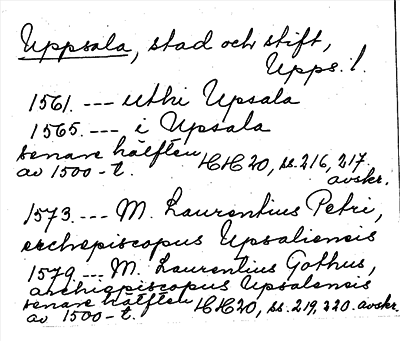 Uppsala, stad och stift,
Upps. l.
1561. --- uthi Upsala
1565. --- i Upsala
senare hälften
av 1500-t. HH 20, ss. 216, 217.
avskr.
1573. --- M. Laurentius Petri,
archepiscopus Upsaliensis
1579 --- M. Laurentius Gothus,
archiepiscopus Upsalensis
senare hälften
av 1500-t. HH 20, ss. 219, 220. avskr.